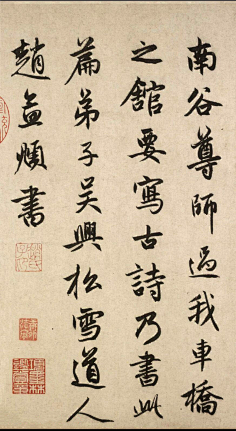 南谷尊師過我車橋
之館要寫古詩乃書此
篇弟子吳興松雪道人
趙孟頫書